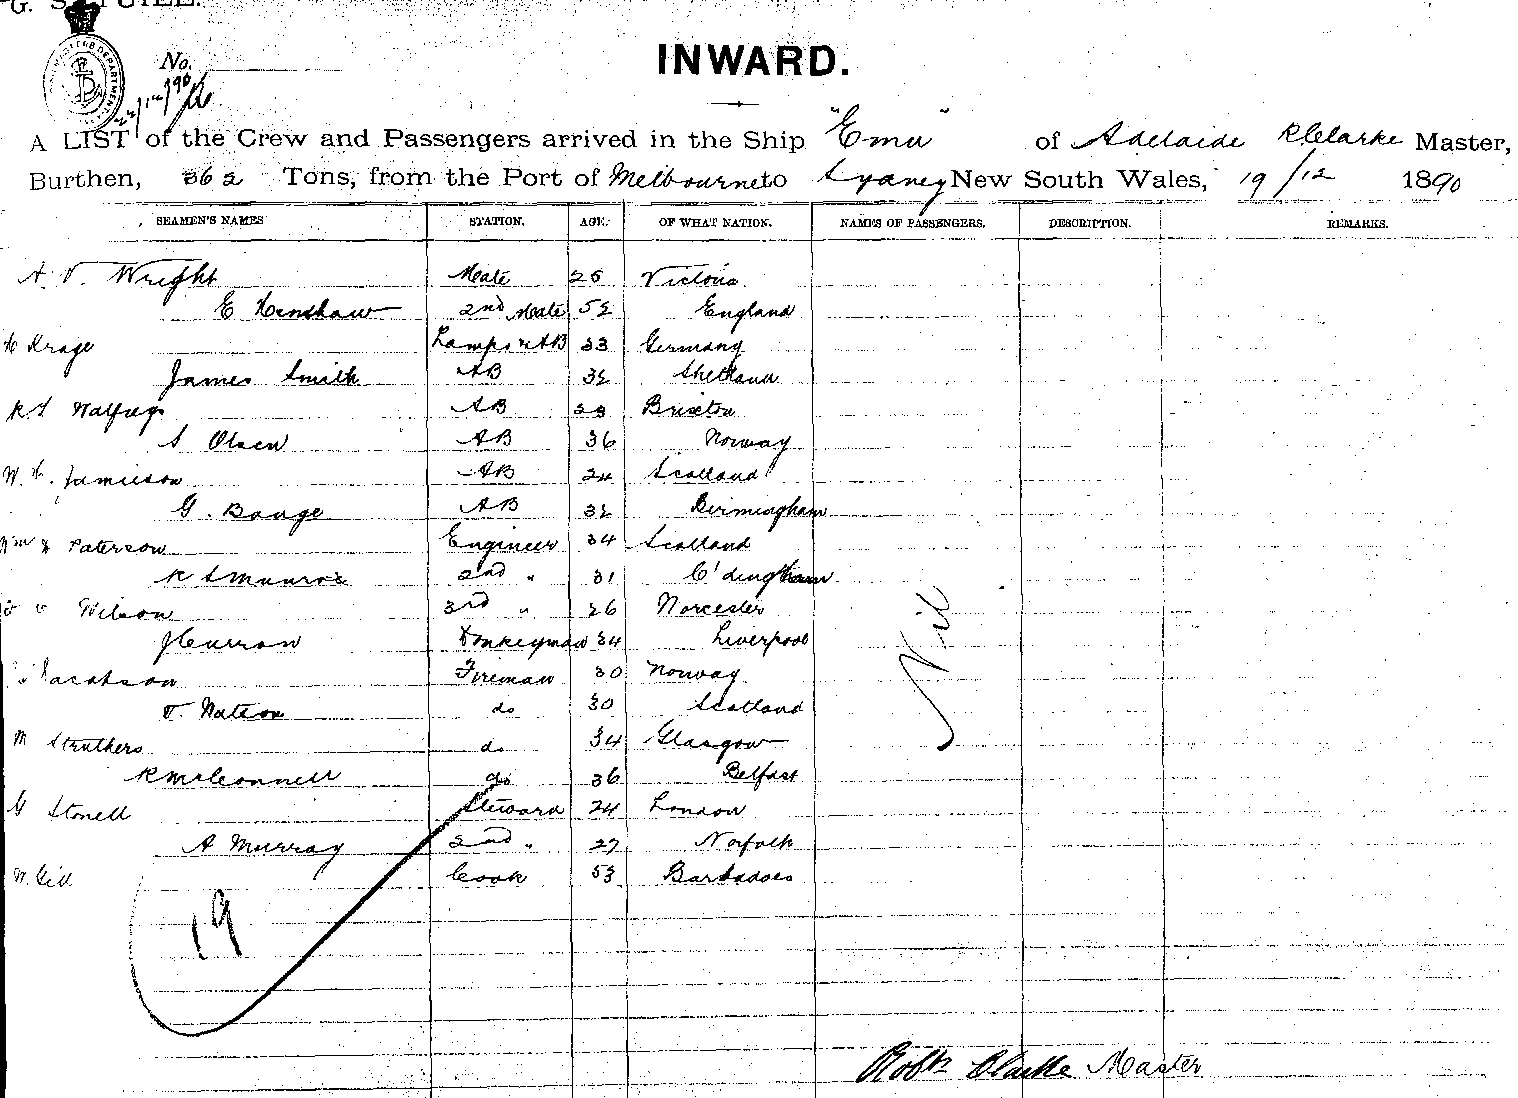 INWARD.
No.
A LIST of the Crew and Passengers arrived in the Ship "Emu" of Adelaide R Clarke Master,
Burthen, 362 Tons, from the Port of Melbourne to Sydney New South Wales, 19/12 1890
SEAMEN'S NAMES STATION. AGE. OF WHAT NATION. NAMES OF PASSENGERS. DESCRIPTION. REMARKS.
A. V. Wright Mate 25 Victoria
E Henshaw 2nd Mate 52 England
Krage Lamps & AB 33 Germany
James Smith AB 32 Shetland
AB 23 Brixton
S Olsen AB 36 Norway
W. H. Jamieson AB 24 Scotland
G. Bange AB 32 Birmingham
Wm Paterson Engineer 34 Scotland
R S Munroe 2nd " 31
Wilson 3rd " 26 Worcester
J Curran Donkeyman 34 Liverpool
Jacobson Fireman 30 Norway
T. Watson do 30 Scotland
M Struthers do 34 Glasgow
R McConnell do 36 Belfast
G Stonell Steward 24 London
A Murray 2nd " 27 Norfolk
W Gill Cook 53 Barbadoes
Nil
19
Robt Clarke Master